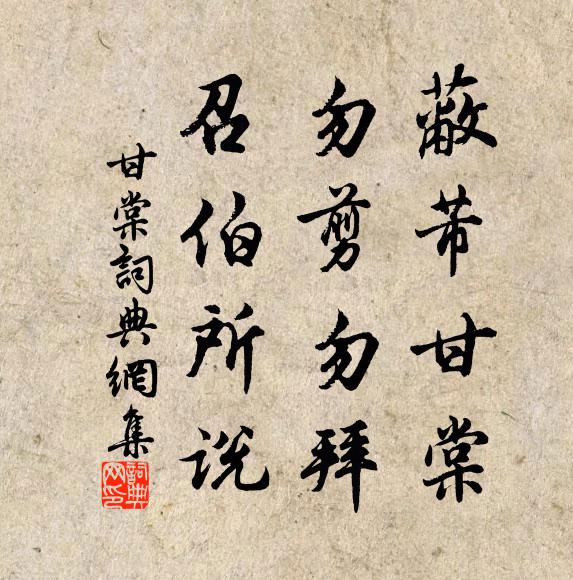 蔽芾甘棠
勿剪勿拜
召伯所说
甘棠詞典網集
詞典网印